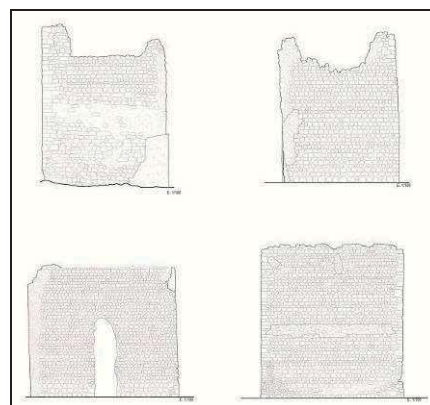 E.1/100
E.1/100
E.1/100
E.1/100